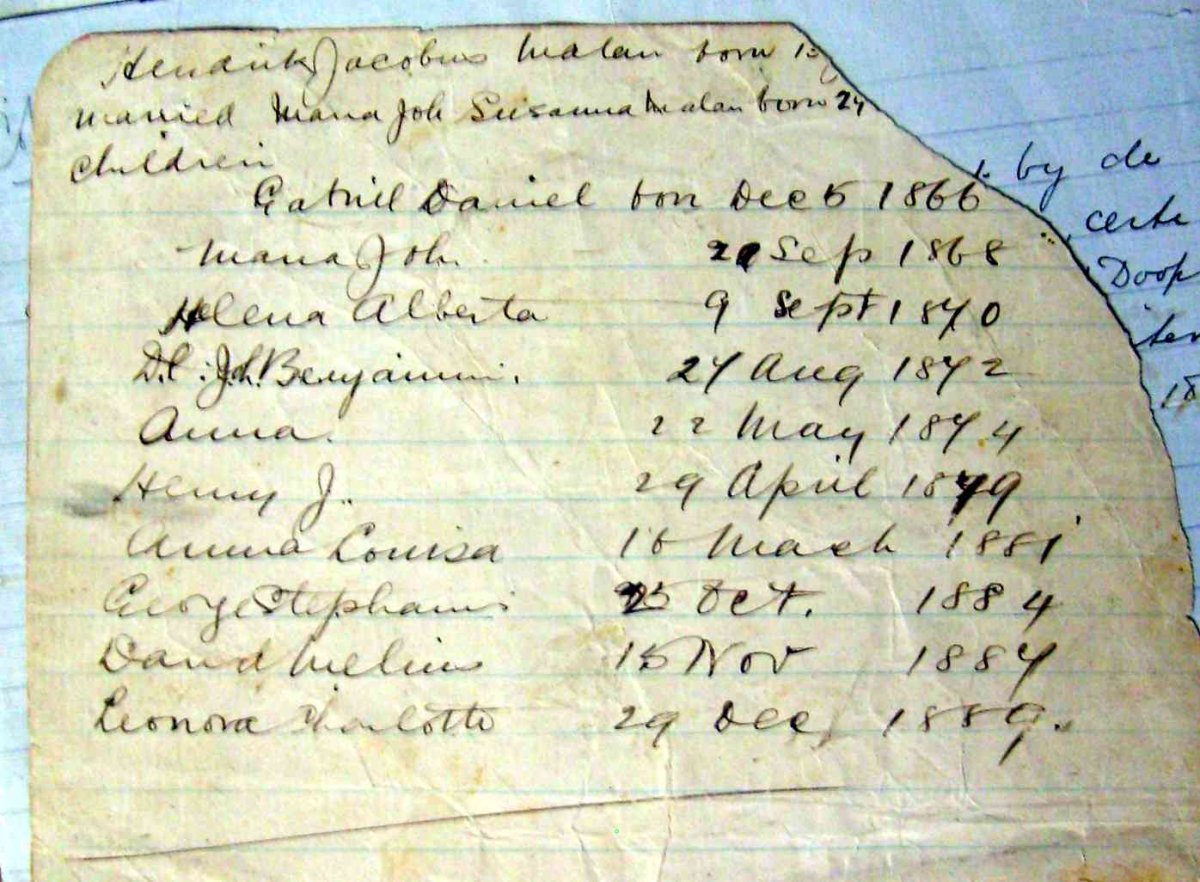 Hendrik Jacobus Malan born 13
married Maria Joh Susanna Malan born 24
children
Gabriel Daniel born Dec 5 1866
Maria Joh. Sep 1868
Helena Alberta 9 Sept 1870
Joh. Benjamin. 27 Aug 1872
Anna. 22 May 1874
Henry J. 29 April 1879
Anna Louisa 16 Mach 1881
George Stephanus 25 Oct. 1884
David 15 Nov 1887
Leonora Charlotte 29 Dec 1889.
by de
certi
Doop
18